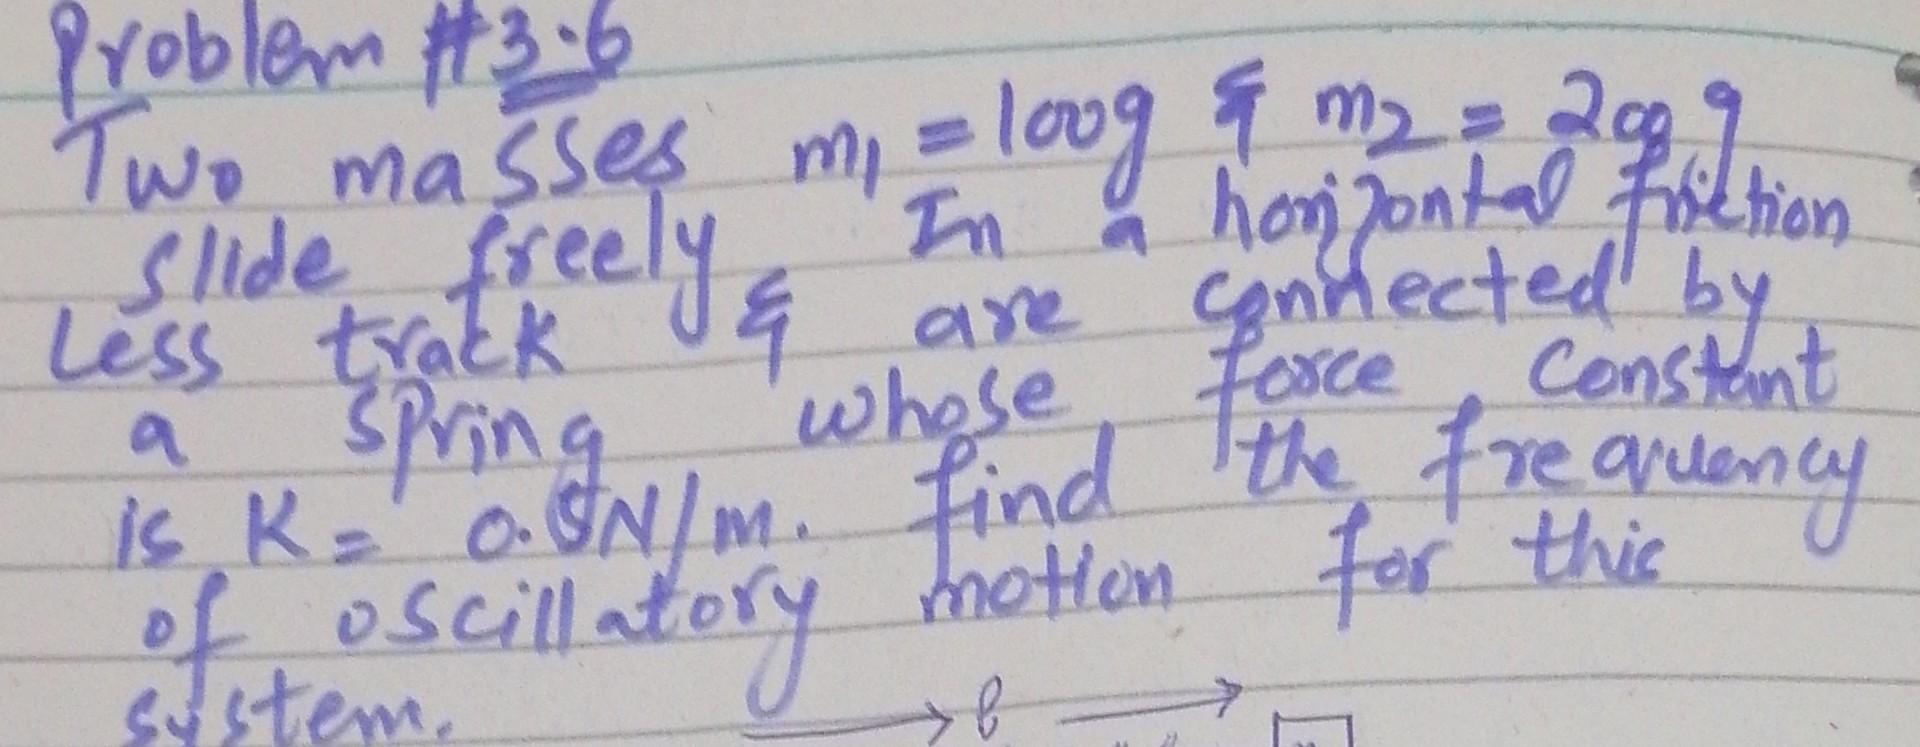 Problem #3.6
Two masses m1 = 100g & m2 = 200g
slide freely In a horizontal friction
less track & are connected by
a spring whose force constant
is K = 0.5N/m. find the frequency
of oscillatory motion for this
system.